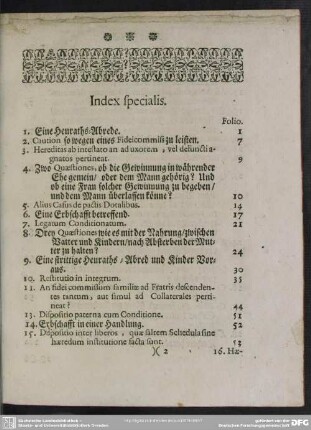 Index specialis.
Folio.
1. Eine Heuraths-Abrede. 1
2. Caution so wegen eines Fideicommiss zu leisten. 7
3. Hereditas ab intestato an ad uxorem, vel defuncti agnatos pertineat. 9
4. Zwo Quæstiones, ob die Gewinnung in währender
Ehe gemein/ oder dem Mann gehörig? Und
ob eine Frau solcher Gewinnung zu begeben/
und dem Mann überlassen könne? 10
5. Alius Casus de pactis Dotalibus. 14
6. Eine Erbschafft betreffend. 17
7. Legatum Conditionatum. 21
8. Drey Quæstiones wie es mit der Nahrung/ zwischen
Vatter und Kindern/ nach Absterben der Mut-
ter zu halten? 24
9. Eine strittige Heuraths-Abred und Kinder Vor-
aus. 30
10. Restitutio in Integrum. 35
11. An fidei commissum familiæ ad Fratris descenden-
tes tantum, aut simul ad Collaterales perti-
neat? 44
13. Dispositio paterna cum Conditione. 51
14. Erbschafft in einer Handlung. 52
15. Dispositio inter liberos, quæ saltem Schedula sine
hæredum institutione facta sunt. 53
)( 2 16. Hæ-